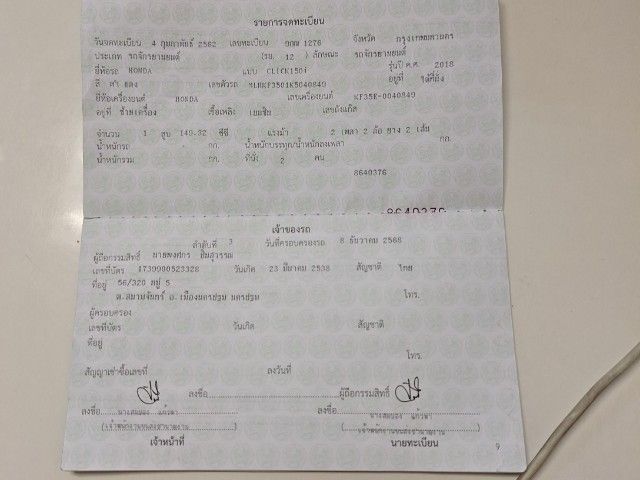 รายการจดทะเบียน
วันจดทะเบียน 4 กุมภาพันธ์ 2562 เลขทะเบียน 9กณ 1276 จังหวัด กรุงเทพมหานคร
ประเภท รถจักรยานยนต์ (รย. 12 ) ลักษณะ รถจักรยานยนต์
ยี่ห้อรถ HONDA แบบ CLICK150i รุ่นปี ค.ศ. 2018
สี ดำ แดง เลขตัวรถ MLHKF3501K5040849 อยู่ที่ ใต้ที่นั่ง
ยี่ห้อเครื่องยนต์ HONDA เลขเครื่องยนต์ KF35E-0040849
อยู่ที่ ซ้ายเครื่อง เชื้อเพลิง เบนซิน เลขถังแก๊ส
จำนวน 1 สูบ 149.32 ซีซี แรงม้า 2 เพลา 2 ล้อ ยาง 2 เส้น
น้ำหนักรถ กก. น้ำหนักบรรทุก/น้ำหนักลงเพลา กก.
น้ำหนักรวม กก. ที่นั่ง 2 คน
8640376
8640376
เจ้าของรถ
ลำดับที่ 3 วันที่ครอบครองรถ 8 ธันวาคม 2568
ผู้ถือกรรมสิทธิ์ นายพงศกร ยิ้มสุวรรณ
เลขที่บัตร 1739900523328 วันเกิด 23 มีนาคม 2538 สัญชาติ ไทย
ที่อยู่ 56/320 หมู่ 5
ต.สนามจันทร์ อ.เมืองนครปฐม นครปฐม โทร.
ผู้ครอบครอง
เลขที่บัตร วันเกิด สัญชาติ
ที่อยู่
โทร.
สัญญาเช่าซื้อเลขที่ ลงวันที่
ลงชื่อ ผู้ถือกรรมสิทธิ์
ลงชื่อ ลงชื่อ
(เจ้าพนักงานขนส่งชำนาญงาน) (เจ้าพนักงานขนส่งชำนาญงาน)
เจ้าหน้าที่ นายทะเบียน
9